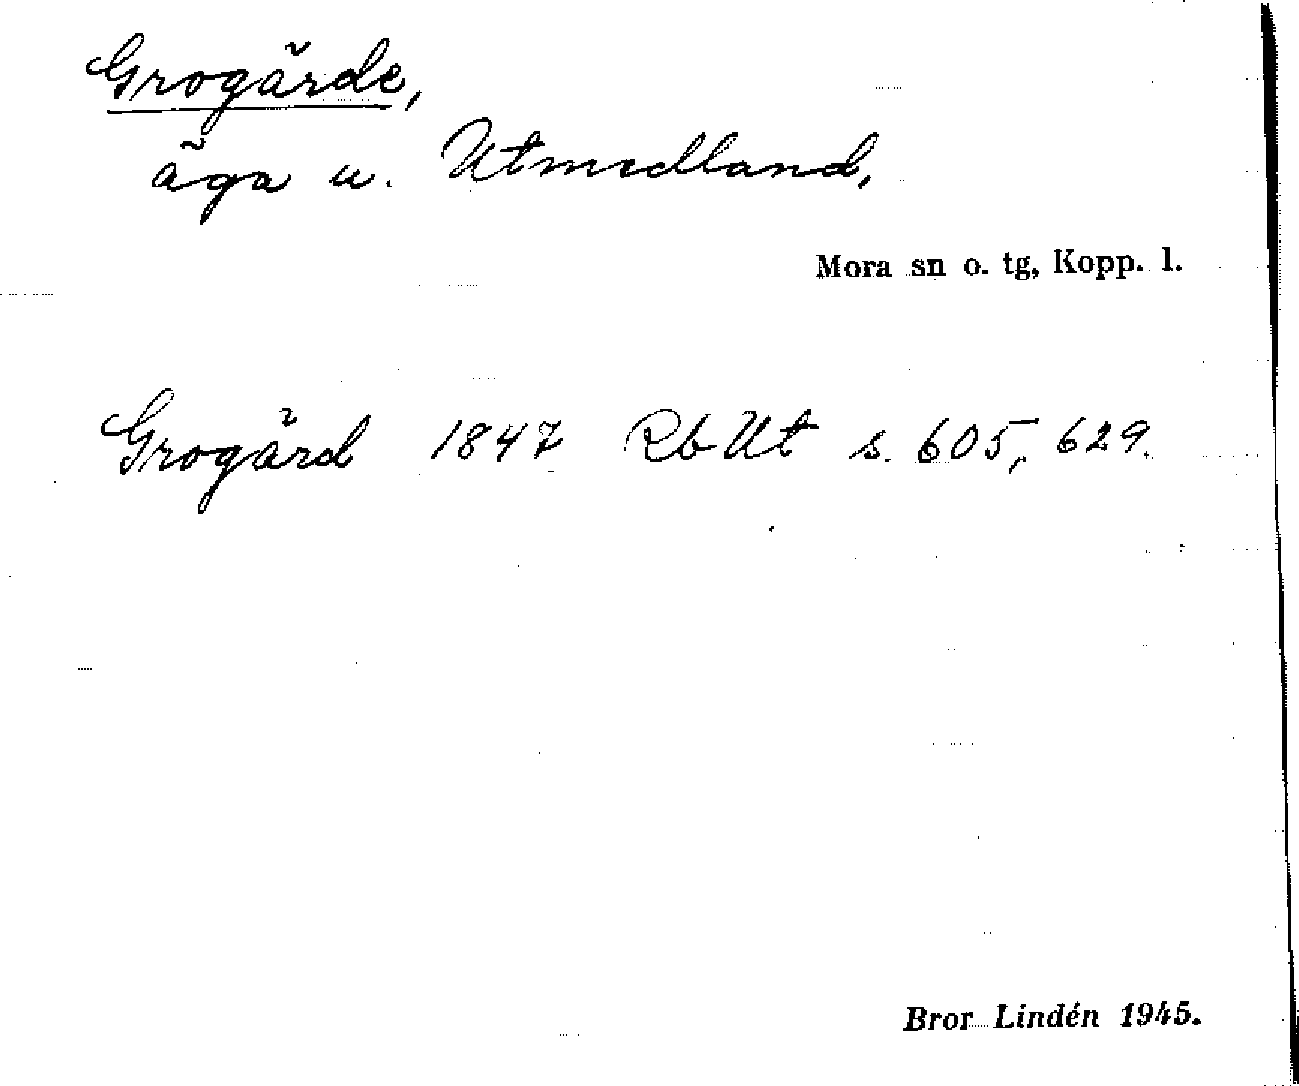 Grogärde,
äga u. Utmedland,
Mora sn o. tg, Kopp. l.
Grogärd 1847 Rb Ut s. 605, 629.
Bror Lindén 1945.